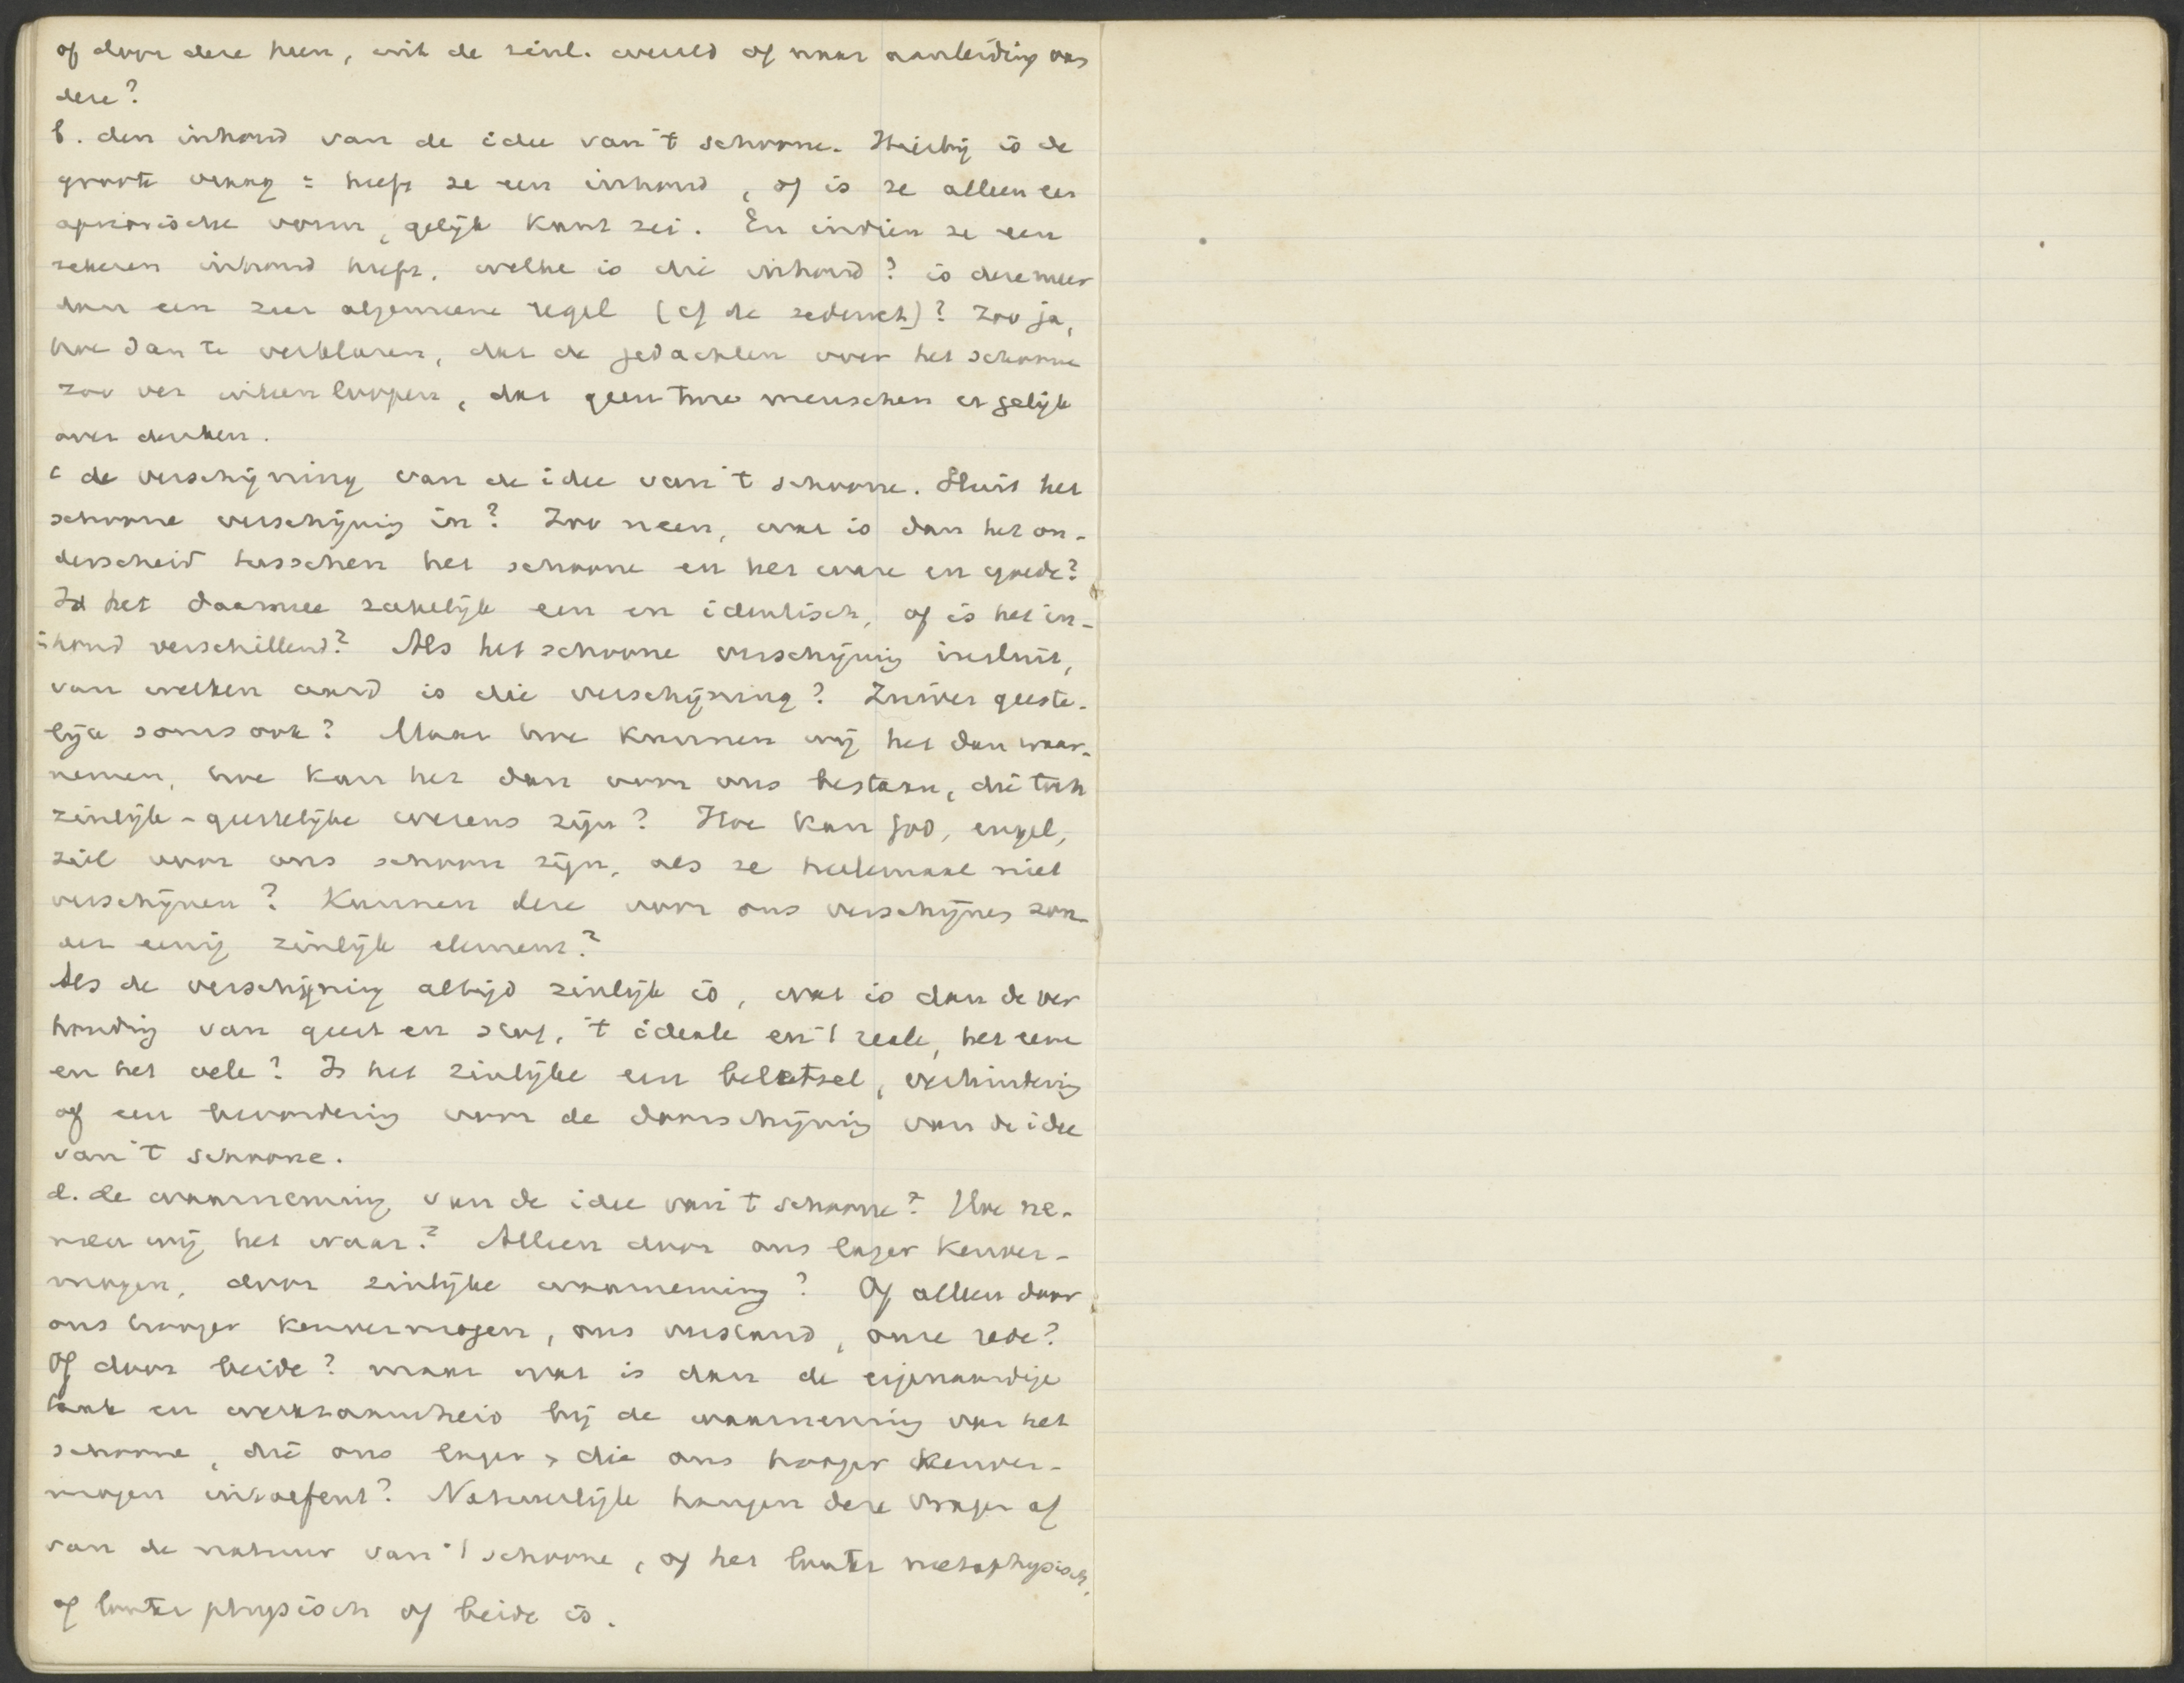 of door deze heen, uit de zinl. wereld of naar aanleiding van
deze?
b. den inhoud van de idee van 't schoone. Hierbij is de
groote vraag = heeft ze een inhoud, of is ze alleen een
apriorische vorm, gelijk Kant zei. En indien ze een
zekeren inhoud heeft, welke is die inhoud? is deze meer
dan een zeer algemeene regel (cf de zedewet)? Zoo ja,
hoe dan te verklaren, dat de gedachten over het schoone
zoo ver uiteen loopen, dat geen twee menschen er gelijk
over denken.
c de verschijning van de idee van 't schoone. Sluit het
schoone verschijning in? Zoo neen, wat is dan het on-
derscheid tusschen het schoone en het ware en goede?
Is het daarmee zakelijk een en identisch, of is het in-
=houd verschillend? Als het schoone verschijning insluit,
van welken aard is die verschijning? Zuiver geeste-
lijk soms ook? Maar hoe kunnen wij het dan waar-
nemen, hoe kan het dan voor ons bestaan, die toch
zinlijk-geestelijke wezens zijn? Hoe kan God, engel,
ziel voor ons schoon zijn, als ze heelemaal niet
verschijnen? Kunnen deze voor ons verschijnen zon-
der eenig zinlijk element?
Als de verschijning altijd zinlijk is, wat is dan de ver
houding van geest en stof, 't ideale en 't reale, het eene
en het vele? Is het zinlijke een beletsel, verhindering
of een bevordering voor de doorschijning van de idee
van 't schoone.
d. de waarneming van de idee van 't schoone? Hoe ne-
men wij het waar? Alleen door ons lager kenver-
mogen, door zinlijke waarneming? Of alleen door
ons hooger kenvermogen, ons verstand, onze rede?
Of door beide? maar wat is dan de eigenaardige
taak en werkzaamheid bij de waarneming van het
schoone, die ons lager, die ons hooger kenver-
mogen uitoefent? Natuurlijk hangen deze vragen af
van de natuur van 't schoone, of het louter metaphysisch,
of louter physisch of beide is.